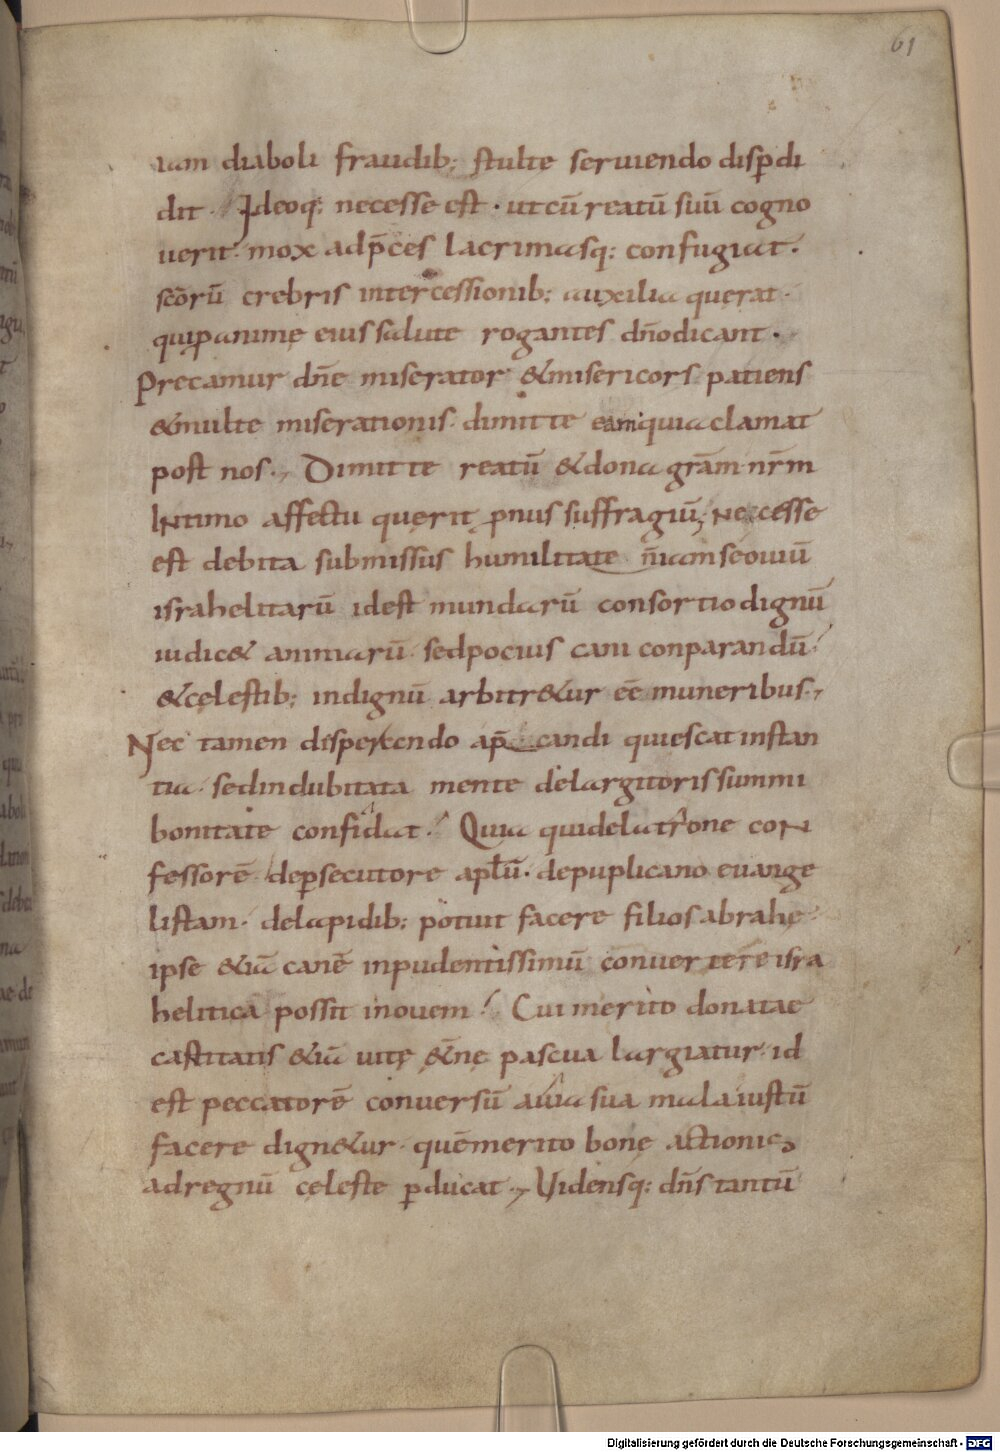 61
iam diaboli fraudib; stulte seruiendo disp̄di
dit. Ideoq; necesse est. ut cū reatū suū cogno
uerit. mox ad p̄ces lacrimasq; confugiat.
sc̄orū crebris intercessionib; auxilia querat.
qui p animę eius salute rogantes dn̄o dicant.
Precamur dn̄e miserator & misericors patiens
& multe miserationis. dimitte eam quia clamat
post nos. Dimitte reatū & dona gr̄am nr̄m
Intimo affectu querit p̄nus suffragiū; Necesse
est debita submissus humilitate n̄ iam se ouiū
israhelitarū id est mundarū consortio dignū
iudic& animarū. sed pocius cani conparandū.
& cęlestib; indignū arbitr&ur eē muneribus.
Nec tamen disperendo ap̄candi quiescat instan
tia. sed indubitata mente de largitoris summi
bonitate confidat. Quia qui de latrone con
fessorē de persecutore apl̄ū. de puplicano euange
listam. de lapidib; potuit facere filios abrahę.
ipse &iā canē inpudentissimū conuertere isra
helitica possit in ouem. Cui merito donatae
castitatis &iā uitę &n̄ę pascua largiatur. id
est peccatorē conuersū a uia sua mala iustū
facere dign&ur. quē merito bonę actionis
ad regnū cęleste p̱ducat. Uidensq; dn̄s tantū
Digitalisierung gefördert durch die Deutsche Forschungsgemeinschaft - DFG